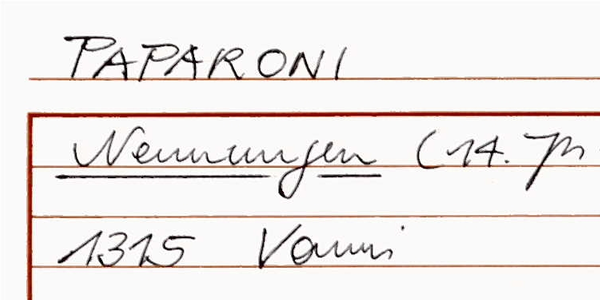 PAPARONI
Nennungen (14. Jh
1315 Vanni